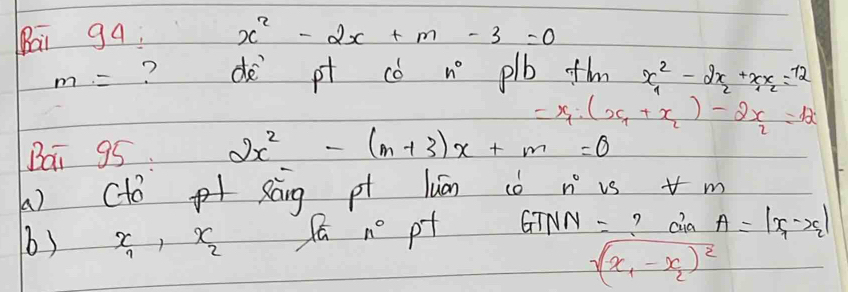 Bài 94: x² - 2x + m - 3 = 0
m = ? để pt có n° p/b t/m x₁² - 2x₂ + x₁x₂ = -12
= x₁.(x₁ + x₂) - 2x₂ = 12
Bài 95: 2x² - (m+3)x + m = 0
a) Ctỏ pt rằng pt luôn có n° vs ∀ m
b) x₁, x₂ là n° pt GTNN = ? của A = |x₁ - x₂|
√(x₁ - x₂)²